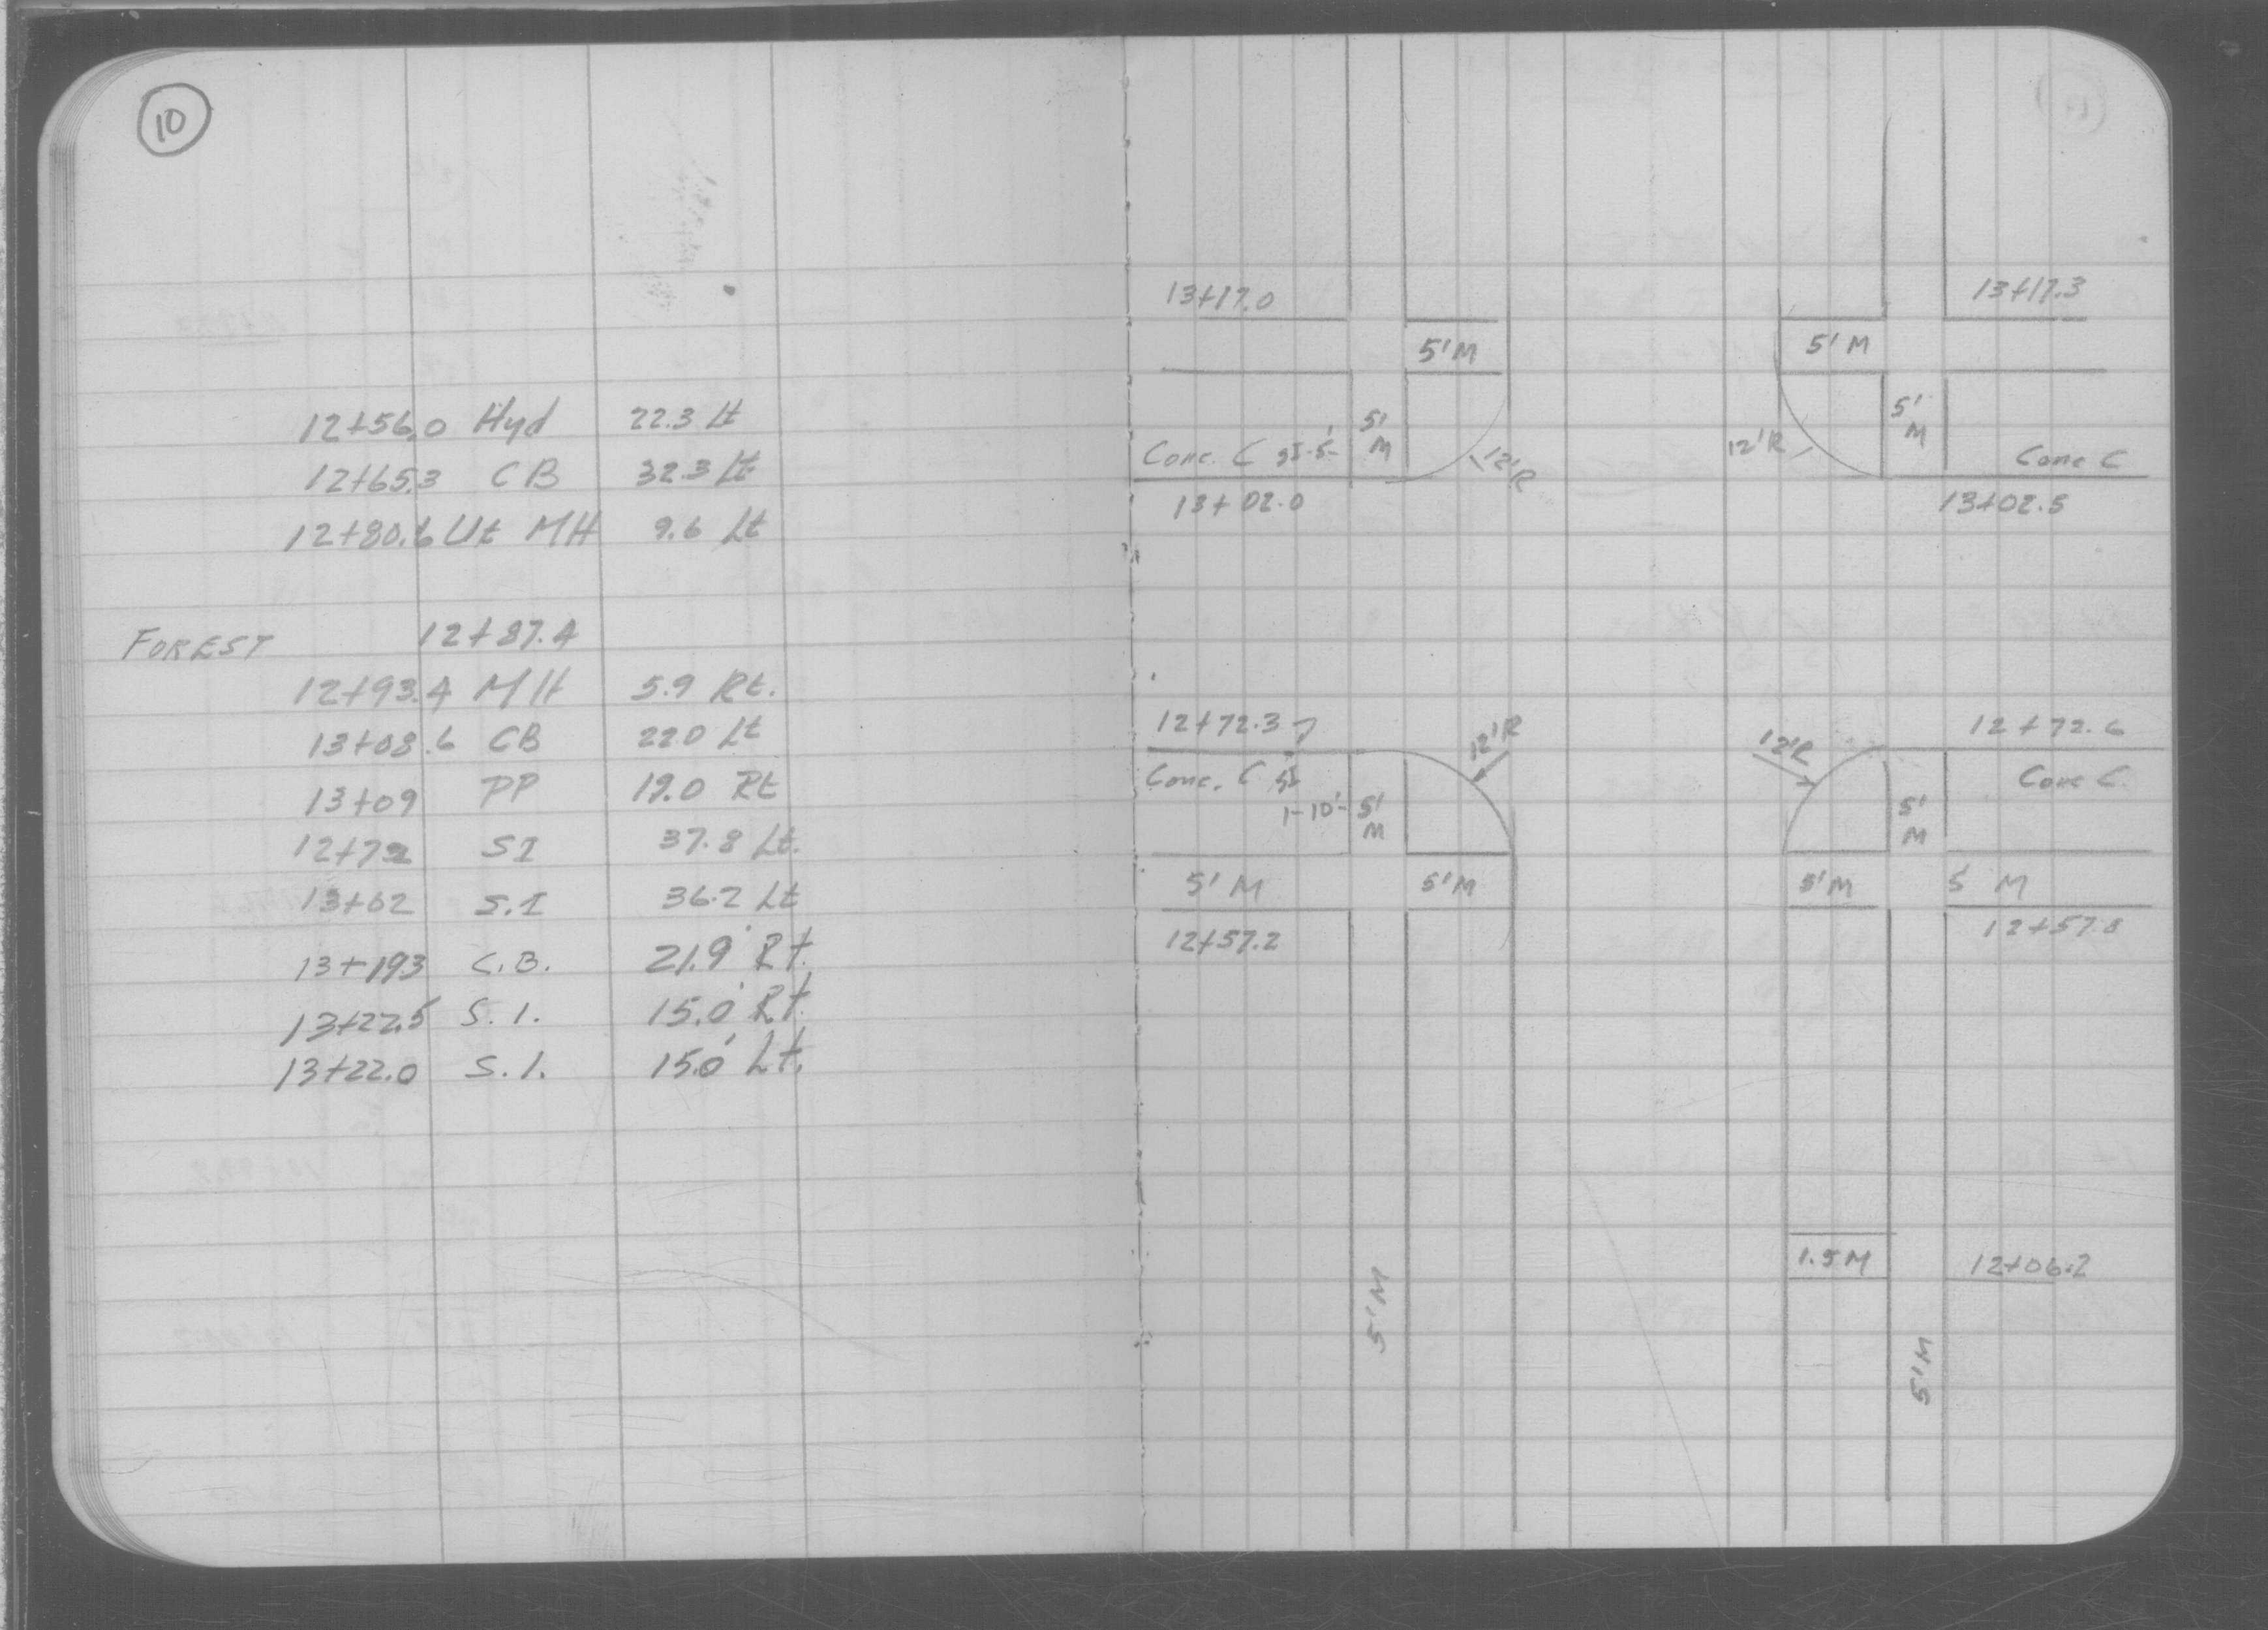 10
12+56.0 Hyd 22.3 Lt
12+65.3 CB 32.3 Lt
12+80.6 Ut MH 9.6 Lt
FOREST 12+87.4
12+93.4 MH 5.9 Rt.
13+08.6 CB 22.0 Lt
13+09 PP 19.0 Rt
12+72 SI 37.8 Lt.
13+02 S.I 36.2 Lt
13+193 C.B. 21.9' Rt.
13+22.5 S.I. 15.0' Rt.
13+22.0 S.I. 15.0' Lt.
13+17.0 13+17.3
5'M 5'M
5' M 5' M
Conc. C SI-5'- 12'R 12'R Conc C
13+02.0 13+02.5
12+72.3 12'R 12'R 12+72.6
Conc. C SI Conc C
1-10'- 5' M 5' M
5'M 5'M 5'M 5 M
12+57.2 12+57.8
1.5M 12+06.2
5'M 5'M